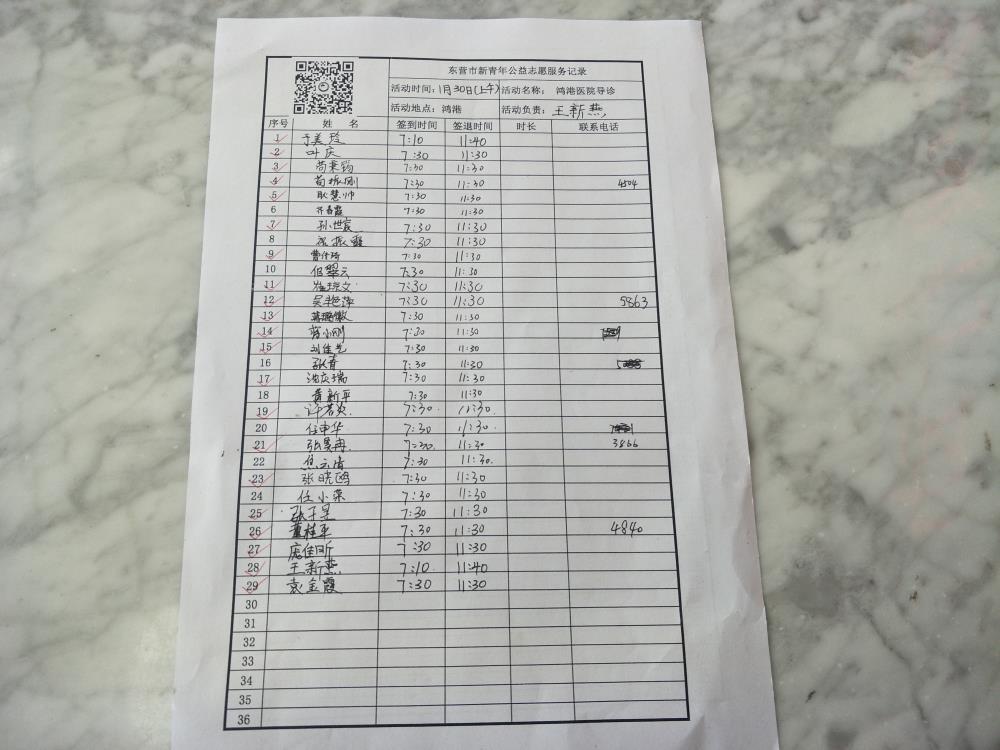 东营市新青年公益志愿服务记录
活动时间：1月30日(上午) 活动名称： 鸿港医院导诊
活动地点：鸿港 活动负责：王新燕
序号 姓 名 签到时间 签退时间 时长 联系电话
1 于美玲 7:10 11:40
2 叶庆 7:30 11:30
3 7:30 11:30
4 荀振刚 7:30 11:30 4504
5 耿慧帅 7:30 11:30
6 7:30 11:30
7 孙世宸 7:30 11:30
8 振霞 7:30 11:30
9 7:30 11:30
10 伯翠云 7:30 11:30
11 崔琼文 7:30 11:30
12 吴艳萍 7:30 11:30 5863
13 7:30 11:30
14 小刚 7:30 11:30
15 刘佳艺 7:30 11:30
16 张青 7:30 11:30
17 庆瑞 7:30 11:30
18 黄新平 7:30 11:30
19 许若 7:30 11:30
20 任中华 7:30 11:30
21 张昊冉 7:30 11:30 3866
22 7:30 11:30
23 张晓鸥 7:30 11:30
24 任小荣 7:30 11:30
25 张子昱 7:30 11:30
26 董桂平 7:30 11:30 4840
27 庞佳昕 7:30 11:30
28 王新燕 7:10 11:40
29 袁金霞 7:30 11:30
30
31
32
33
34
35
36